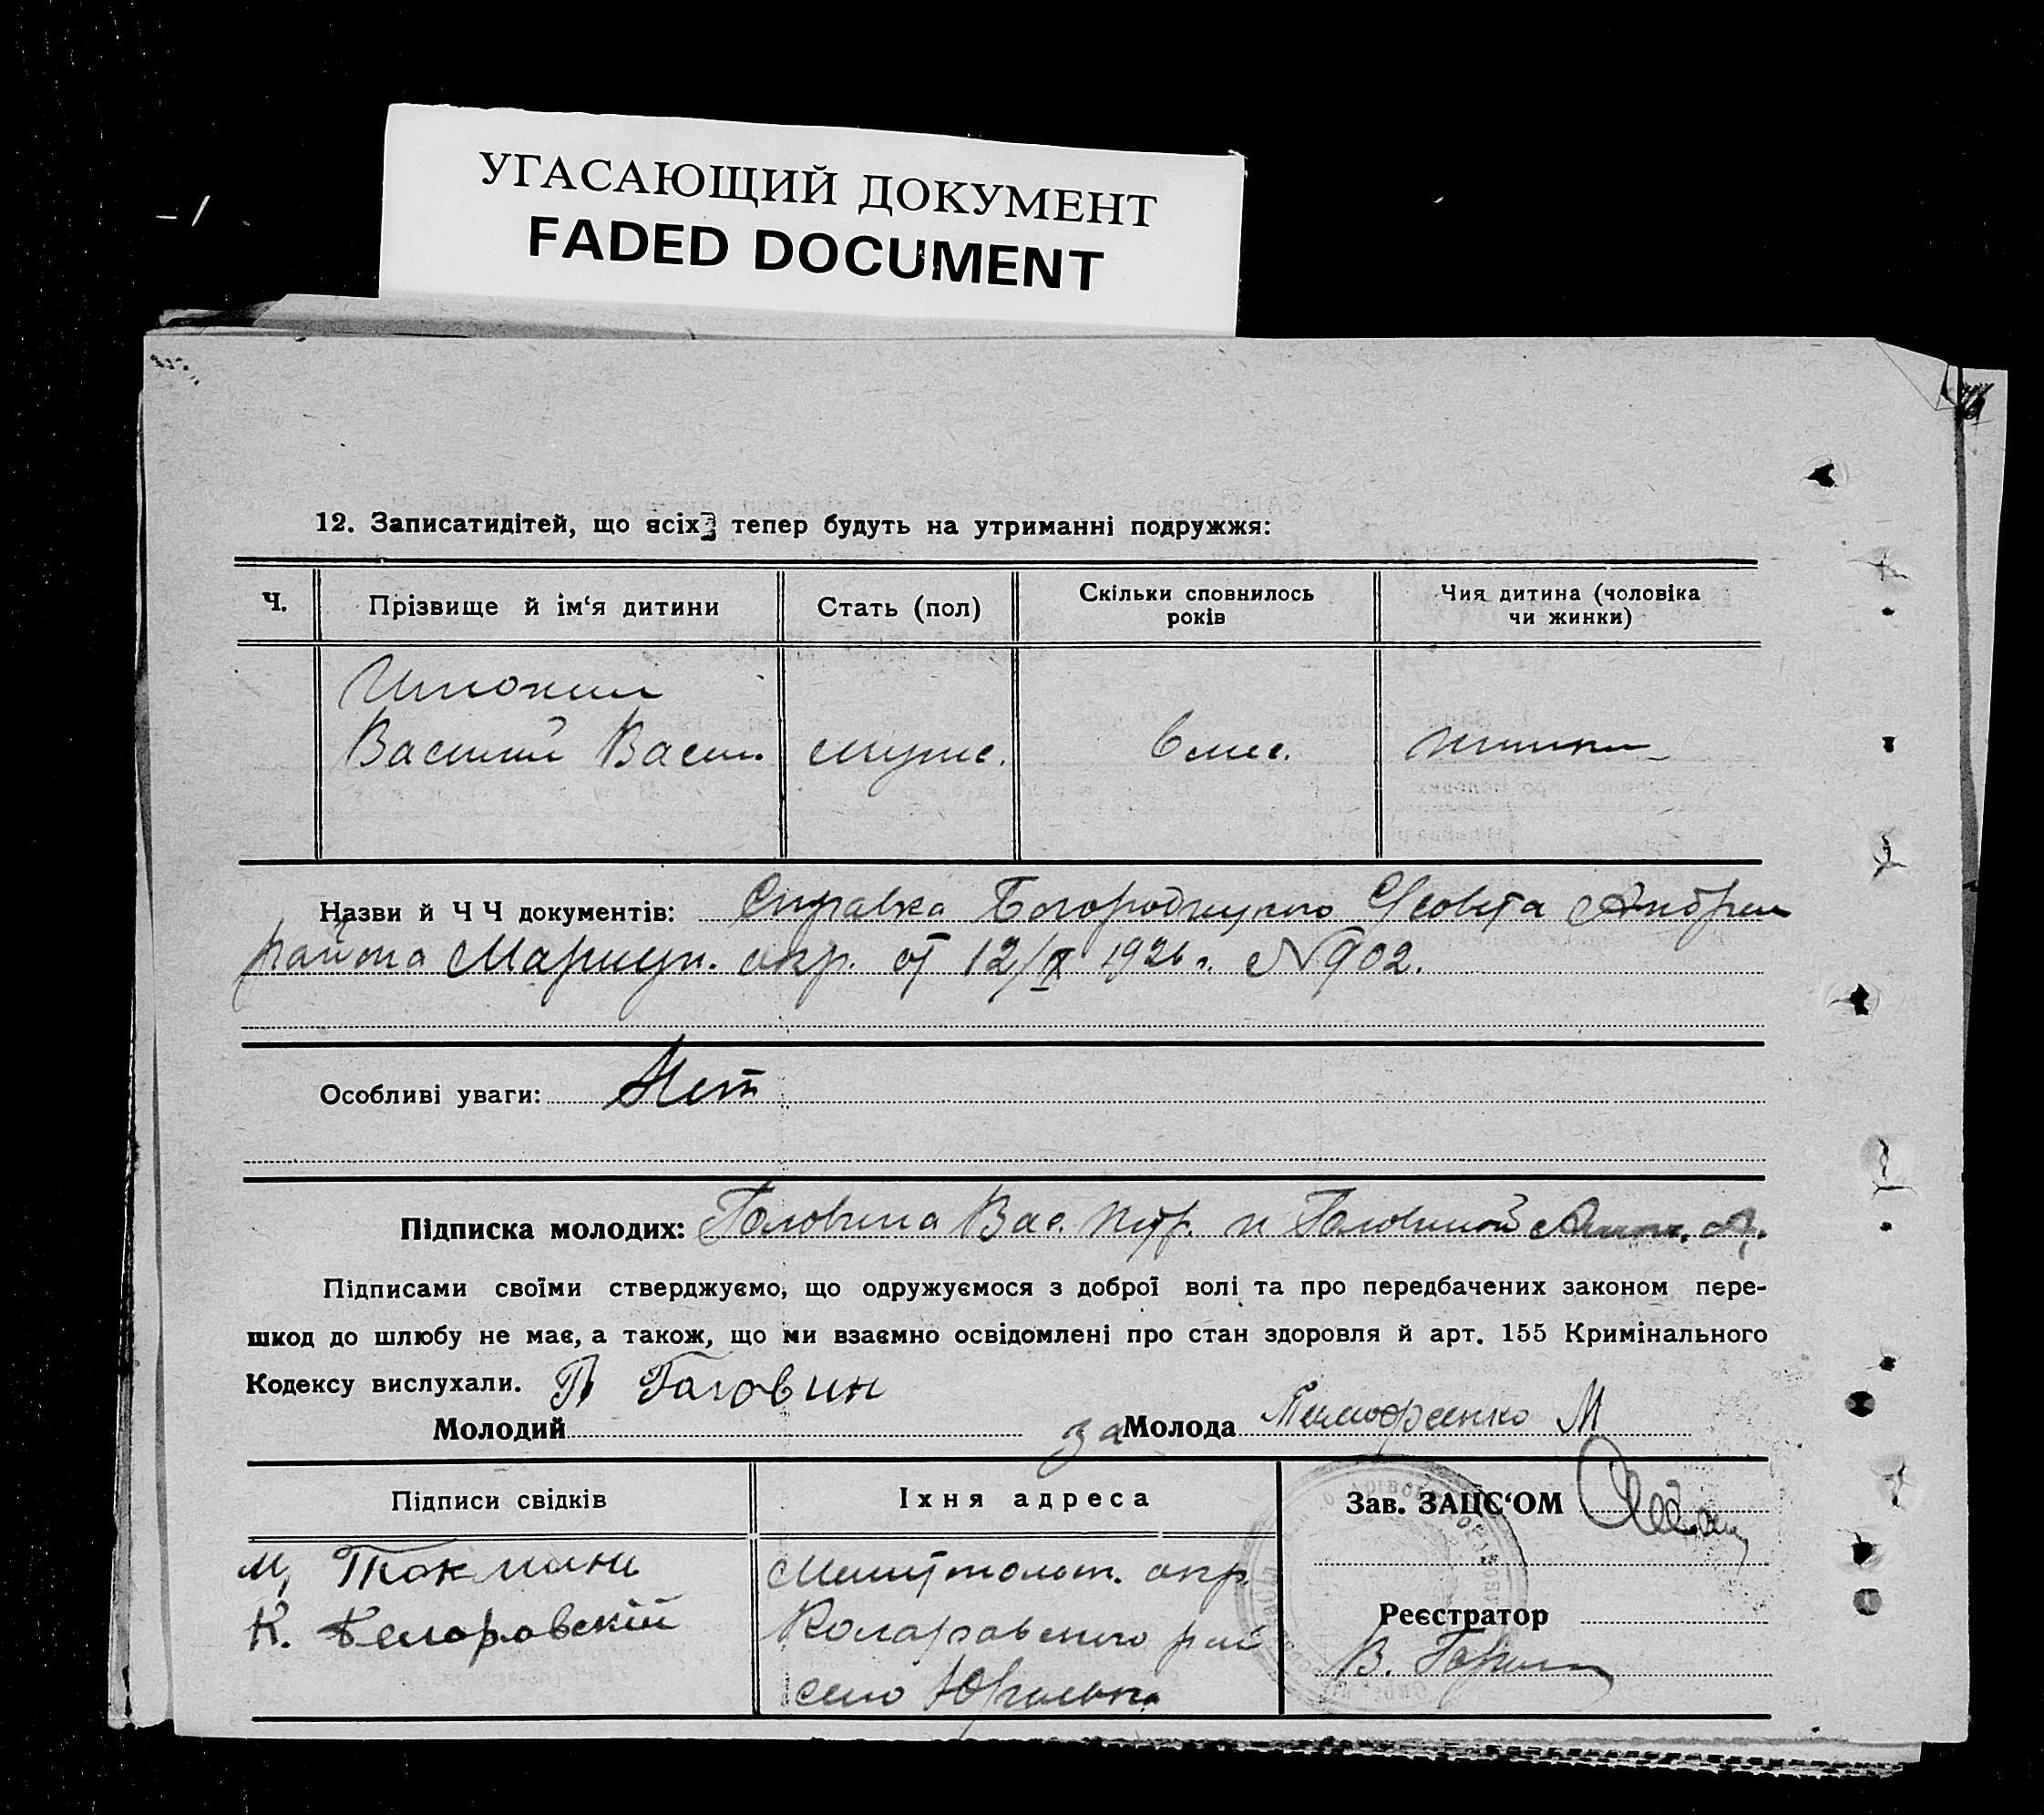 УГАСАЮЩИЙ ДОКУМЕНТ
FADED DOCUMENT
12. Записатидітей, що всіх тепер будуть на утриманні подружжя:
Ч.
Прізвище й ім‘я дитини
Стать (пол)
Скільки сповнилось
років
Чия дитина (чоловіка
чи жинки)
Василий Васил.
муж.
6 мес.
Назви й Ч Ч документів: Справка Богородицкого С/совета Андреев
района Мариуп. окр. от 12/X 1926 г. № 902.
Особливі уваги: Нет
Підписка молодих: Головина Вас. Петр. и Головиной
Підписами своїми стверджуємо, що одружуємося з доброї волі та про передбачених законом пере-
шкод до шлюбу не має, а також, що ми взаємно освідомлені про стан здоровля й арт. 155 Кримінального
Кодексу вислухали. Головин
Молодий
за Молода Тимофеенко М
Підписи свідків
Їхня адреса
Зав. ЗАЦС‘ОМ
М. Токмань
Мелитопольск. окр.
К.
Коларовского рай
Реєстратор
село Юрьевка
В.